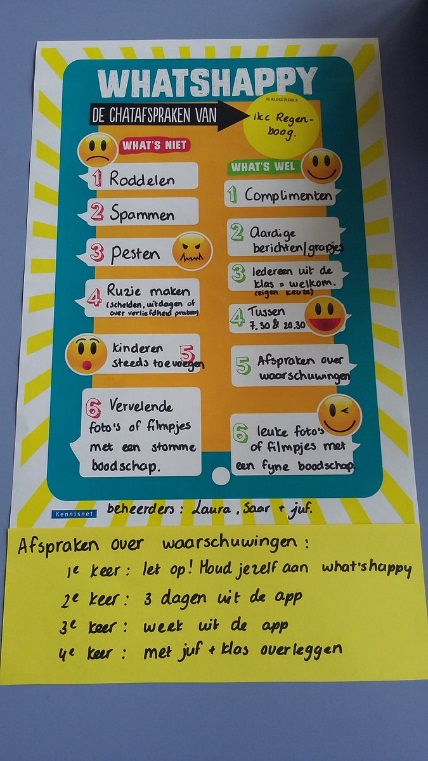 WHATSHAPPY
DE CHATAFSPRAKEN VAN
ikc Regen-
boog.
WHAT'S NIET
1 Roddelen
2 Spammen
3 pesten
4 Ruzie maken
(schelden, uitdagen of
over verliefdheid praten)
5 kinderen
steeds toevoegen
6 Vervelende
foto's of filmpjes
met een stomme
boodschap.
WHAT'S WEL
1 Complimenten
2 Aardige
berichten/grapjes
3 Iedereen uit de
klas = welkom.
(eigen keuze)
4 Tussen
7.30 & 20.30
5 Afspraken over
waarschuwingen
6 leuke foto's
of filmpjes met
een fijne boodschap
Kennisnet
beheerders: Laura, Saar + juf.
Afspraken over waarschuwingen:
1e keer: let op! Houd jezelf aan what'shappy
2e keer: 3 dagen uit de app
3e keer: week uit de app
4e keer: met juf + klas overleggen